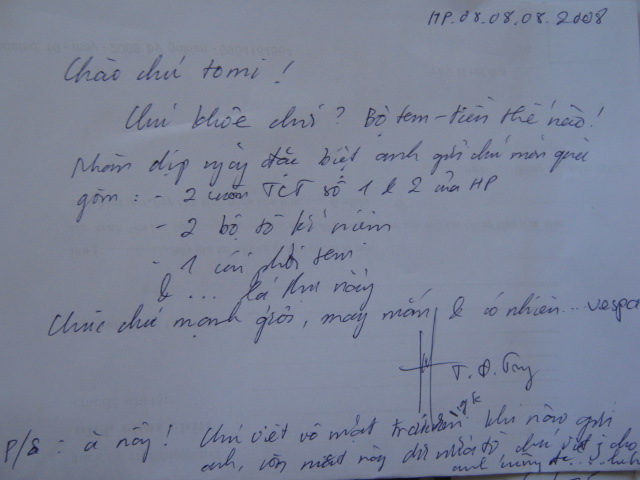 HP. 08.08.08.2008
Chào chú tomi!
Chú khỏe chứ? Bộ tem-tiền thế nào!
Nhân dịp ngày đặc biệt anh gửi chú món quà
gồm: - 2 cuốn TCT số 1 & 2 của HP
- 2 bộ tờ kỉ niệm
- 1 cái phôi tem
& ... lá thư này
Chúc chú mạnh giỏi, may mắn & có nhiên... vespa
T. Đ.
P/S: à này! Chú viết vô mặt khi nào gửi
anh, còn mặt này chú viết gì cho
anh